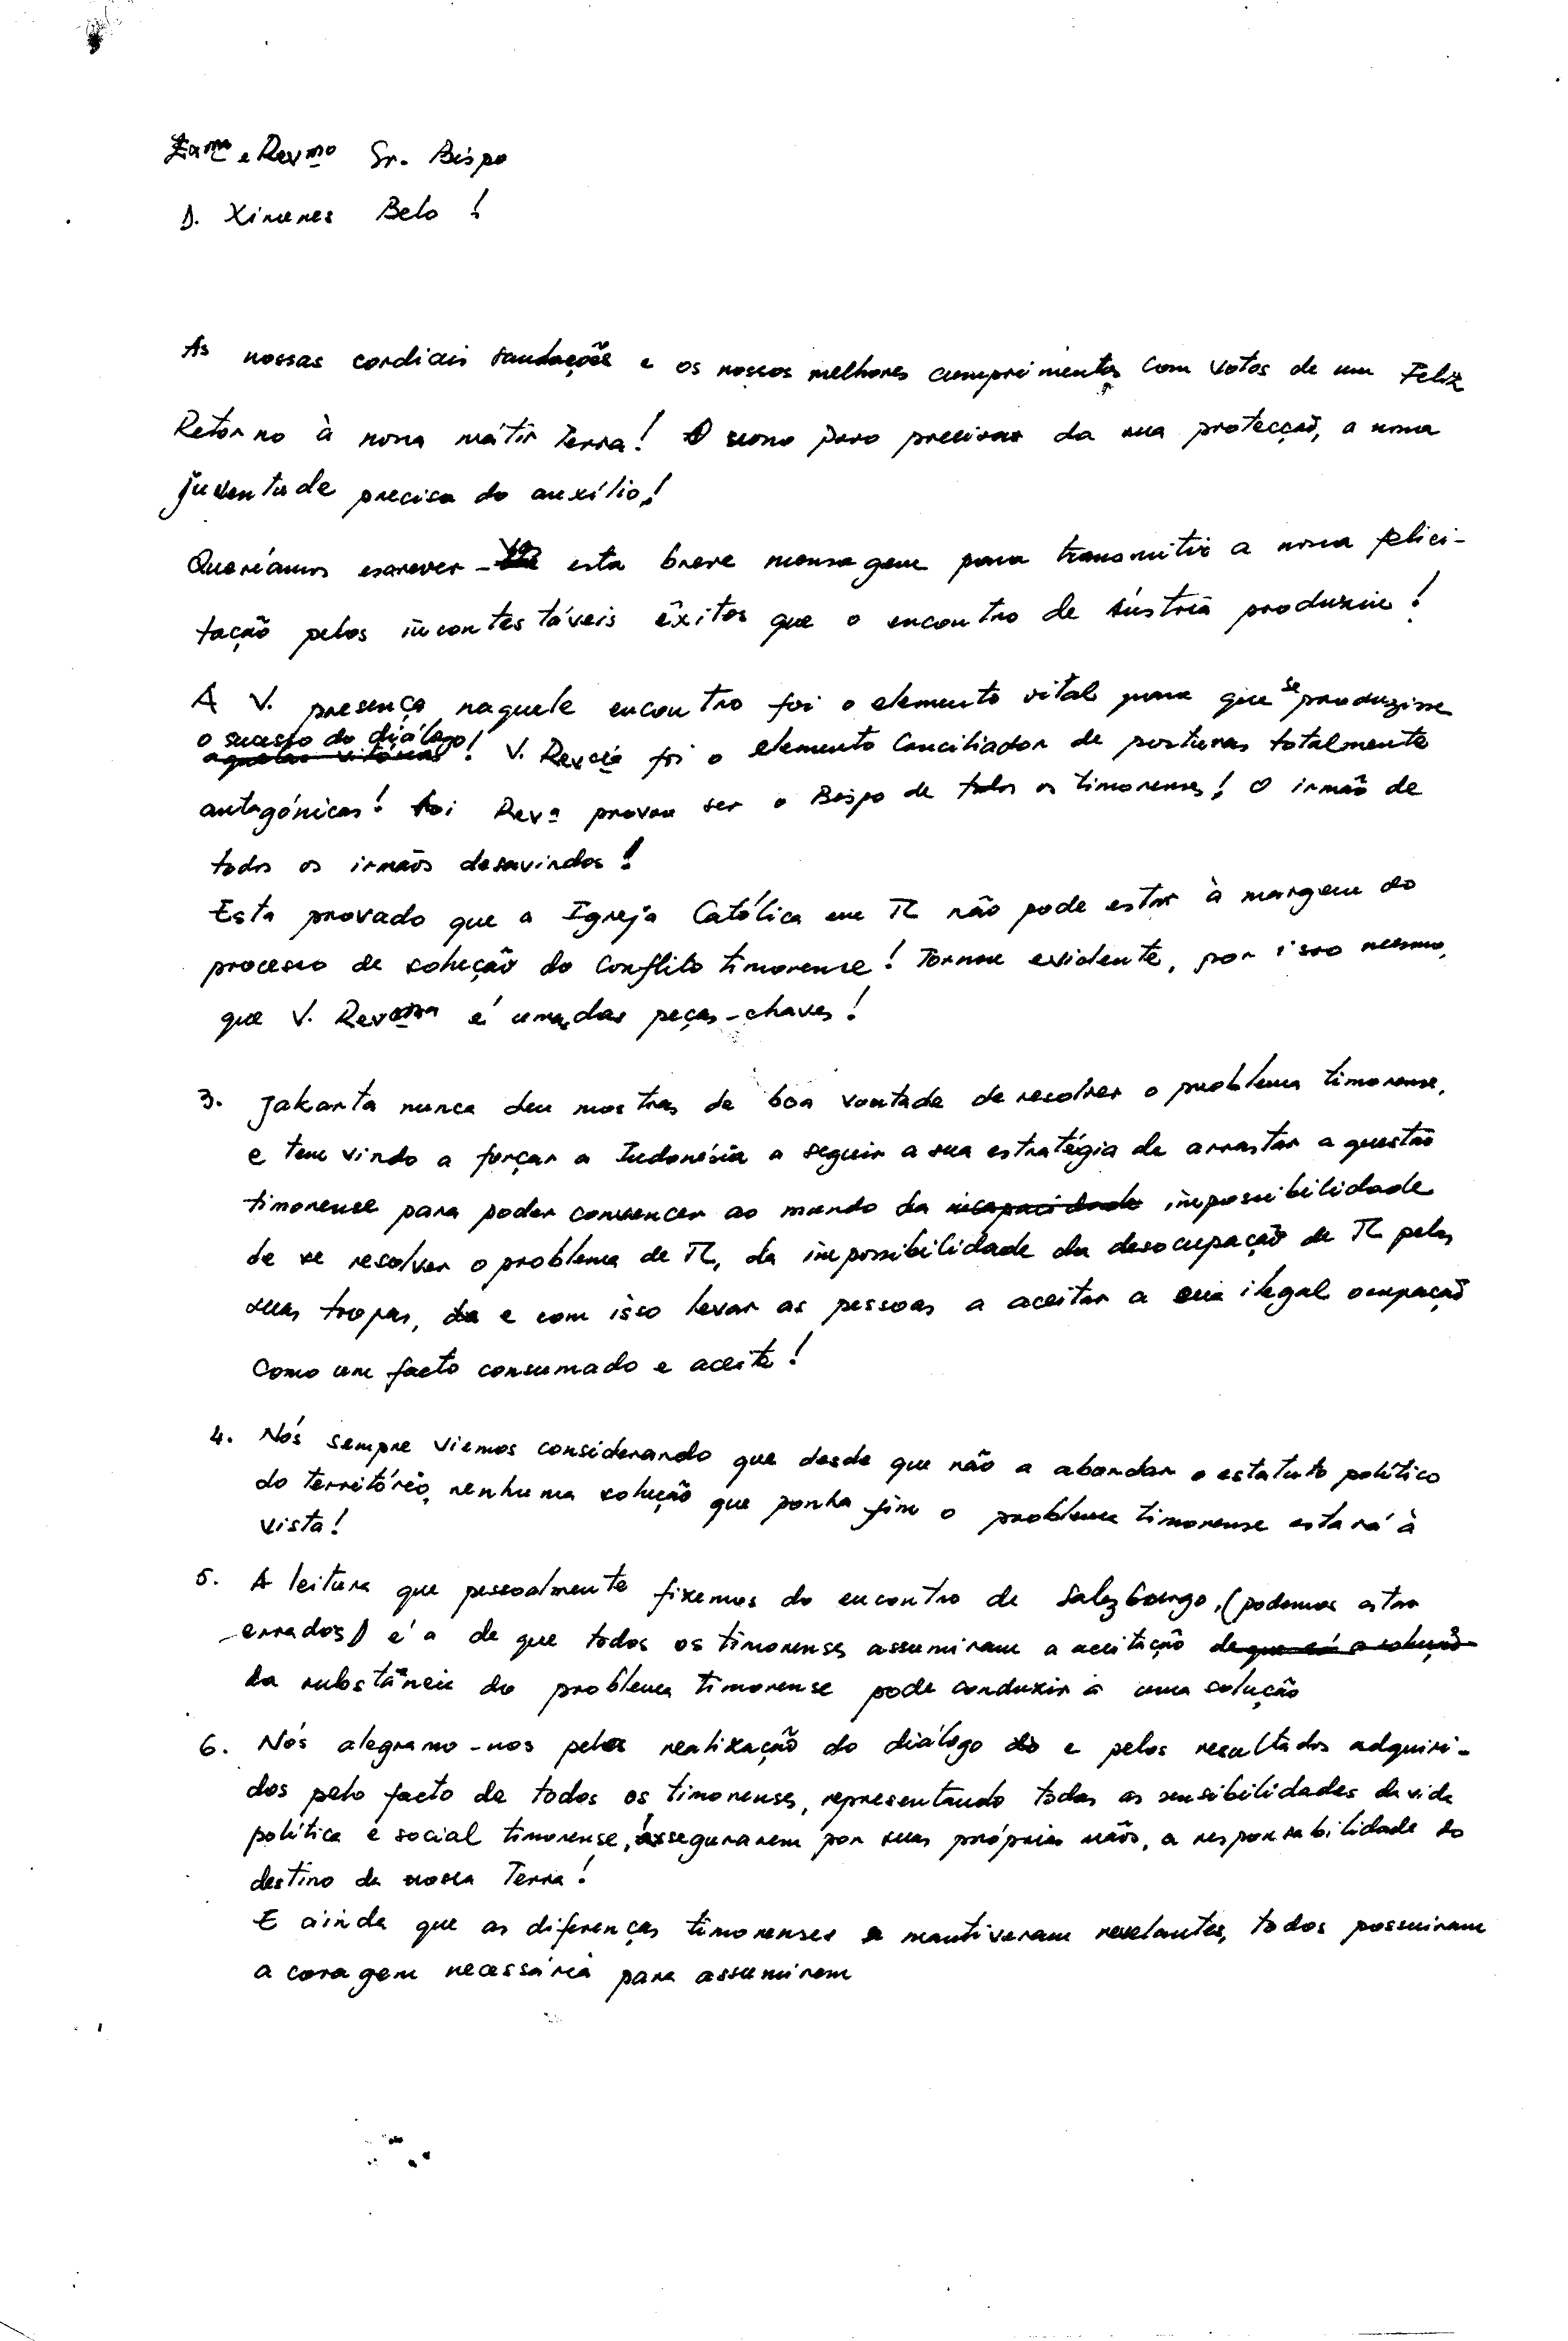 Exma e Revmo Sr. Bispo
D. Ximenes Belo !
As nossas cordiais saudações e os nossos melhores cumprimentos com votos de um Feliz
Retorno à nossa mátir Terra! O nosso Povo precisa da sua protecção, a nossa
juventude precisa do auxílio!
Queríamos escrever- esta breve mensagem para transmitir a nossa felici-
tação pelos incontestáveis êxitos que o encontro de Áustria produziu!
A V. presença naquele encontro foi o elemento vital para que se produzisse
o sucesso do diálogo! V. Revcia foi o elemento conciliador de posturas totalmente
antagónicas! Reva provou ser o Bispo de todos os timorenses! O irmão de
todos os irmãos desavindos!
Esta provado que a Igreja Católica em TL não pode estar à margem do
processo de solução do conflito timorense! Tornou evidente, por isso mesmo,
que V. Revma é uma das peças-chaves!
3. Jakarta nunca deu mostras de boa vontade de resolver o problema timorense,
e tem vindo a forçar a Indonésia a seguir a sua estratégia de arrastar a questão
timorense para poder convencer ao mundo da incapacidade impossibilidade
de se resolver o problema de TL, da impossibilidade da desocupação de TL pelas
suas tropas, da e com isso levar as pessoas a aceitar a sua ilegal ocupação
como um facto consumado e aceite!
4. Nós sempre viemos considerando que desde que não a abordar o estatuto político
do território, nenhuma solução que ponha fim o problema timorense estará à
vista!
5. A leitura que pessoalmente fizemos do encontro de Salzburgo, (podemos estar
errados) é a de que todos os timorenses assumiram a aceitação de que só a solução
da substância do problema timorense pode conduzir a uma solução
6. Nós alegramo-nos pela realização do diálogo do e pelos resultados adquiri-
dos pelo facto de todos os timorenses, representando todas as sensibilidades da vida
política e social timorense, assegurarem por suas próprias mãos, a responsabilidade do
destino da nossa Terra!
E ainda que as diferenças timorenses se mantiveram revelantes, todos possuiram
a coragem necessária para assumirem